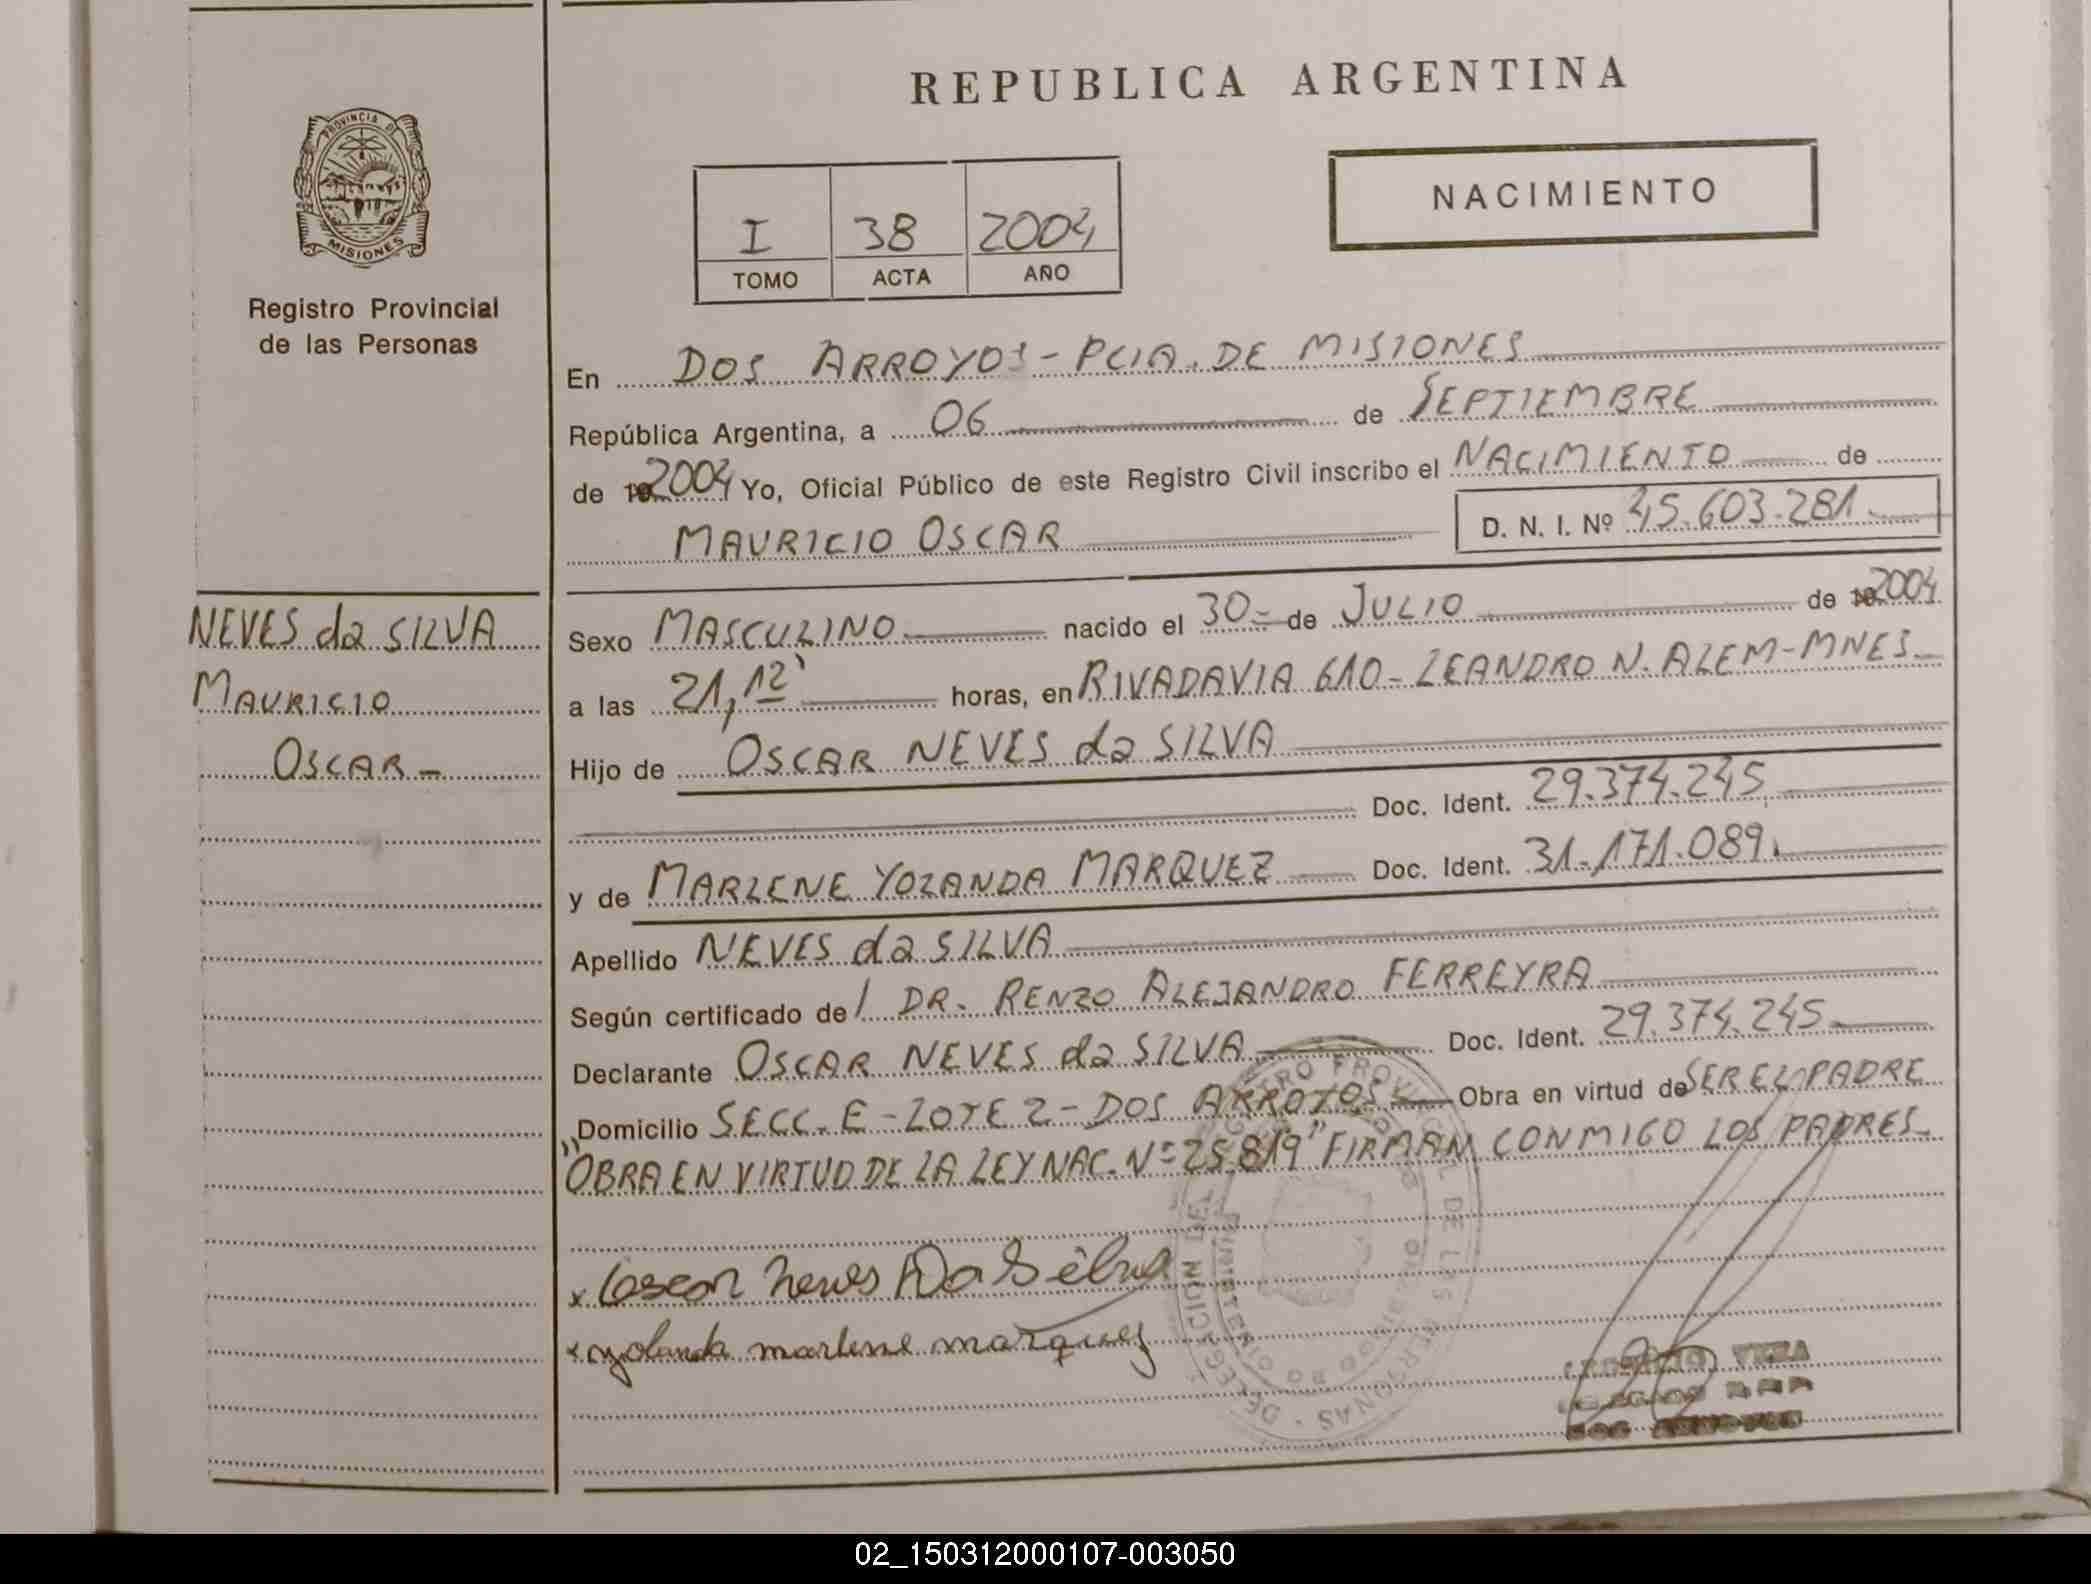 REPUBLICA ARGENTINA
PROVINCIA DE
MISIONES
Registro Provincial
de las Personas
NACIMIENTO
I 38 2004
TOMO ACTA AÑO
En DOS ARROYOS - PCIA. DE MISIONES
República Argentina, a 06 de SEPTIEMBRE
de 2004 Yo, Oficial Público de este Registro Civil inscribo el NACIMIENTO de
MAURICIO OSCAR D. N. I. Nº 45.603.281
NEVES da SILVA
MAURICIO
OSCAR -
Sexo MASCULINO nacido el 30 - de JULIO de 2004
a las 21,12' horas, en RIVADAVIA 610 - LEANDRO N. ALEM - MNES
Hijo de OSCAR NEVES da SILVA
Doc. Ident. 29.374.245
y de MARLENE YOLANDA MARQUEZ Doc. Ident. 31.171.089
Apellido NEVES da SILVA
Según certificado de / DR. RENZO ALEJANDRO FERREYRA
Declarante OSCAR NEVES da SILVA Doc. Ident. 29.374.245
Domicilio SECC. E - LOTE 2 - DOS ARROYOS Obra en virtud de SER EL PADRE
"OBRA EN VIRTUD DE LA LEY NAC. Nº 25.819" FIRMAN CONMIGO LOS PADRES
x Oscar Neves Da Silva
x yolanda marlene marquez
02_150312000107-003050